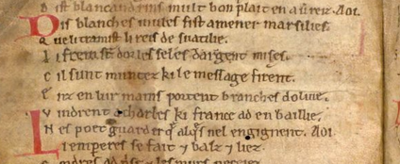 Dist blancandrins mult bon plait en aureiz. Aoi.
Dis blanches mules fist amener marsilies.
Que li tramist li reis de suatilie.
Li frein sunt dor les seles dargent mises.
Cil sunt muntez ki le message firent.
Enz en lur mains portent branches dolive.
Vindrent a charles ki france ad en baillie.
Nes poet guarder que alques nel engignent. Aoi.
Li empereres se fait e balz e liez.